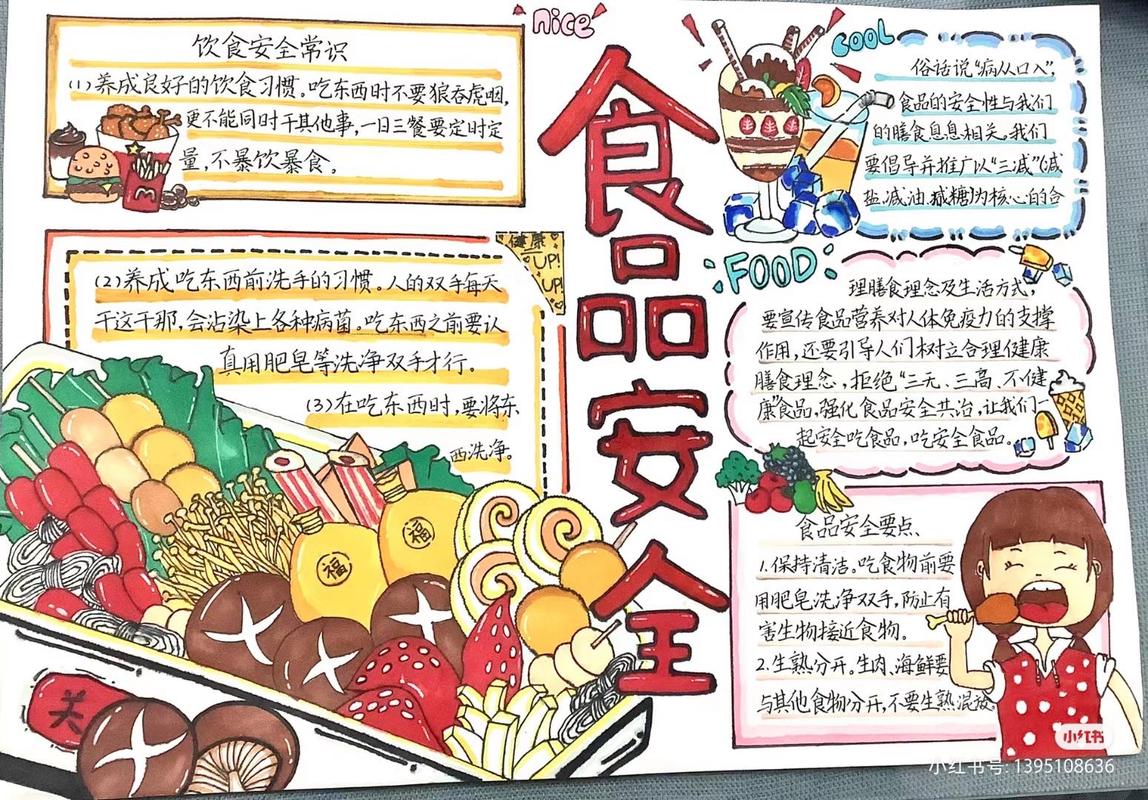 饮食安全常识
(1)养成良好的饮食习惯。吃东西时不要狼吞虎咽,
更不能同时干其他事,一日三餐要定时定
量,不暴饮暴食。
健康
UP!
UP!
(2)养成吃东西前洗手的习惯。人的双手每天
干这干那,会沾染上各种病菌。吃东西之前要认
真用肥皂等洗净双手才行。
(3)在吃东西时,要将东
西洗净。
福
福
关
nice
食品安全
COOL
俗话说“病从口入”,
食品的安全性与我们
的膳食息息相关。我们
要倡导并推广以“三减”(减
盐、减油、减糖)为核心的合
FOOD:
理膳食理念及生活方式,
要宣传食品营养对人体免疫力的支撑
作用,还要引导人们树立合理健康
膳食理念,拒绝“三无、三高、不健
康”食品,强化食品安全共治,让我们一
起安全吃食品,吃安全食品。
食品安全要点
1.保持清洁。吃食物前要
用肥皂洗净双手,防止有
害生物接近食物。
2.生熟分开。生肉、海鲜要
与其他食物分开,不要生熟混放。
小红书
小红书号: 1395108636